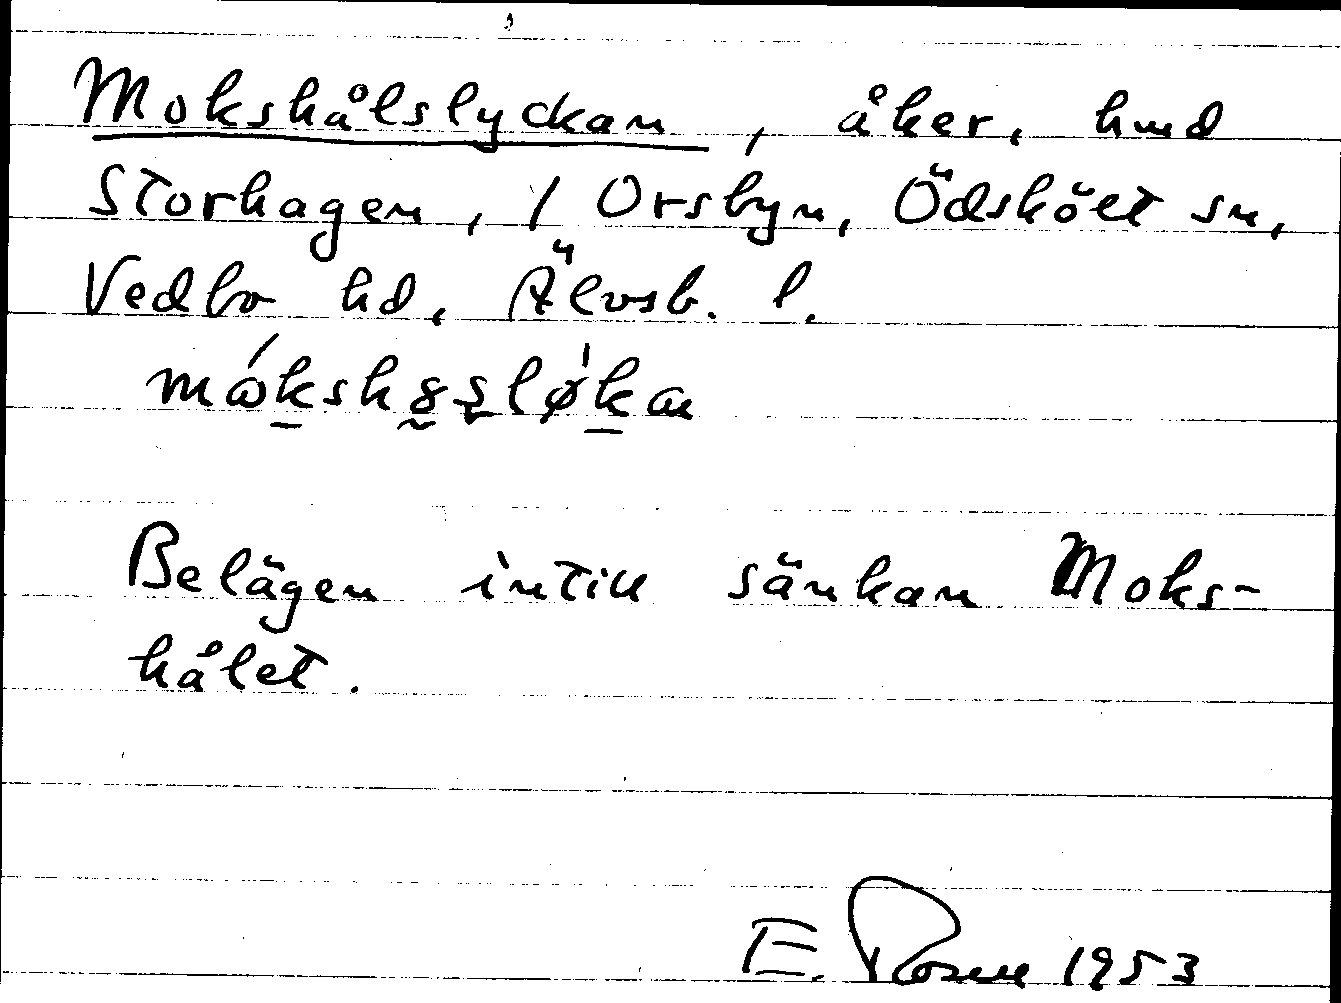 Mokshålslyckan, åker, hmd
Storhagen, 1 Orsbyn, Ödskölt sn,
Vedbo hd, Älvsb. l.
Belägen intill sänkan Moks-
hålet.
E. Rosell 1953